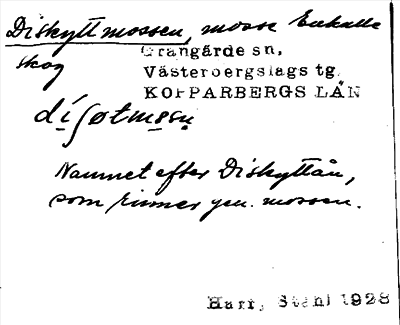 Diskyttmossen, mosse Enkulla
skog
Grangärde sn,
Västerbergslags tg,
KOPPARBERGS LÄN
díʃøtmosn
Namnet efter Diskyttån,
som rinner gen. mossen.
Harr, Ståhl 1928